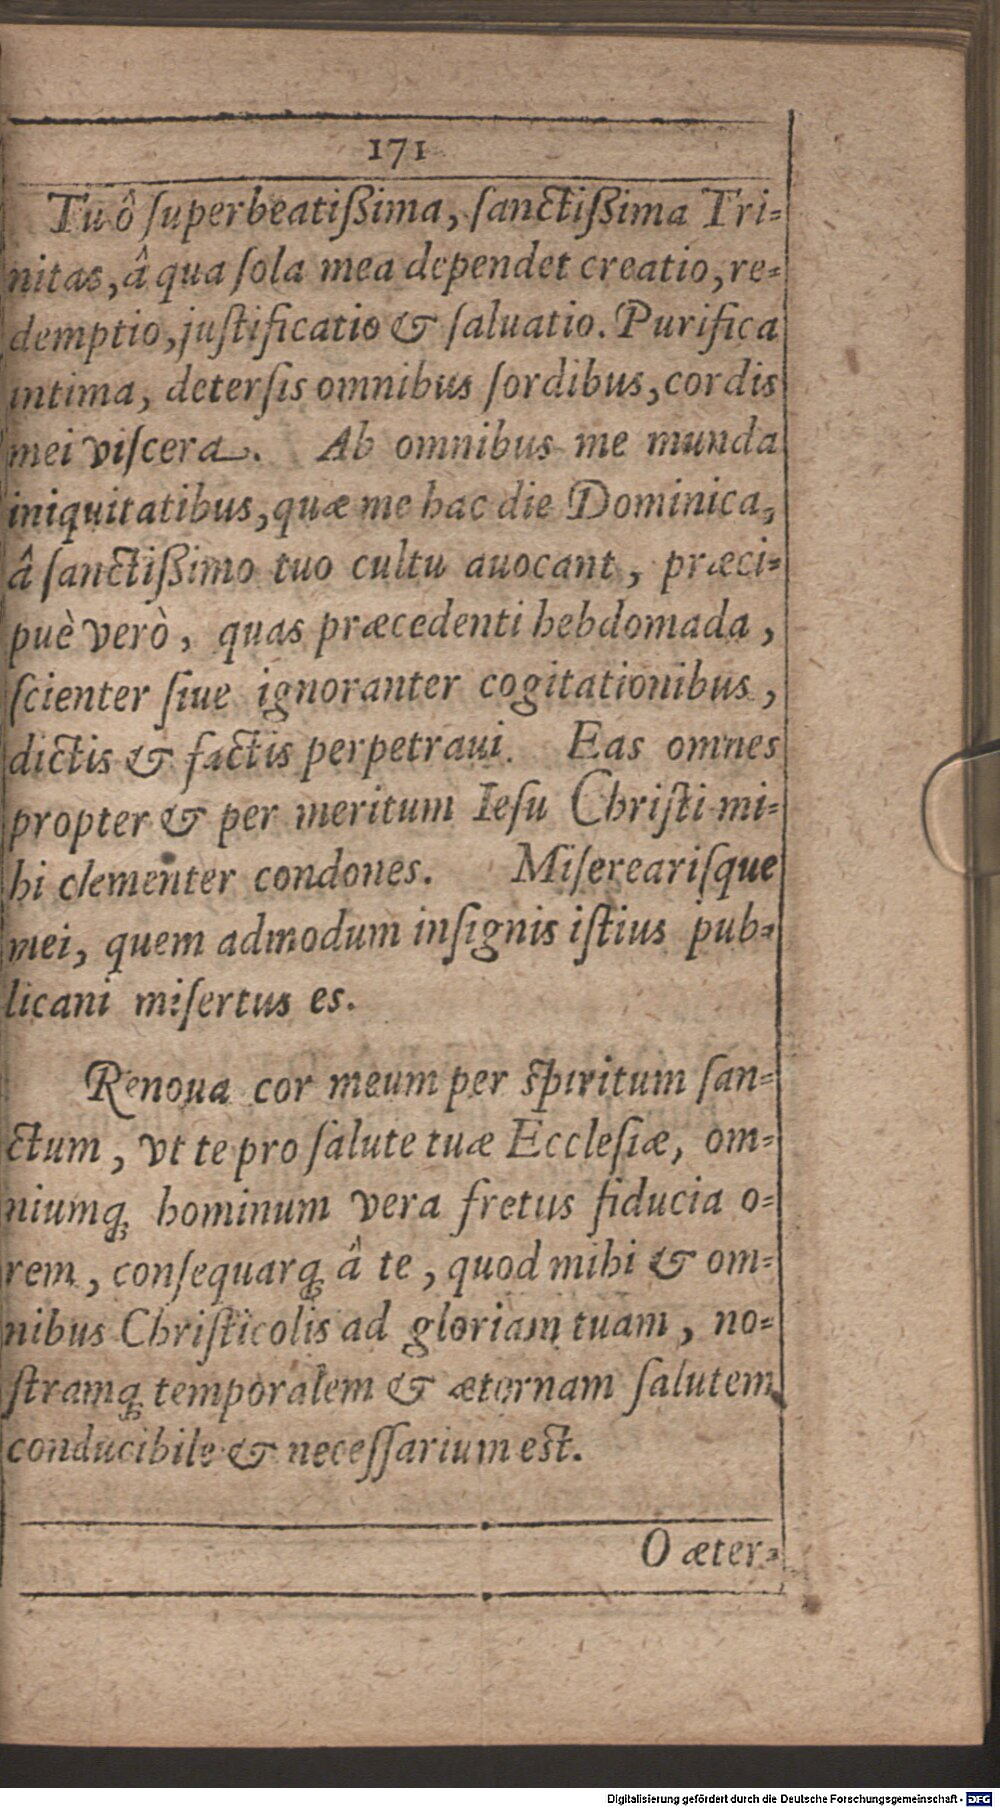 171
Tu ô ſuperbeatiſsima, ſanctiſsima Tri-
nitas, â qua ſola mea dependet creatio, re-
demptio, juſtificatio & ſaluatio. Purifica
intima, deterſis omnibus ſordibus, cordis
mei viſcera. Ab omnibus me munda
iniquitatibus, quæ me hac die Dominica,
â ſanctiſsimo tuo cultu auocant, præci-
puè verò, quas præcedenti hebdomada,
ſcienter ſiue ignoranter cogitationibus,
dictis & factis perpetraui. Eas omnes
propter & per meritum Ieſu Chriſti mi-
hi clementer condones. Miſerearisque
mei, quem admodum inſignis iſtius pub-
licani miſertus es.
Renoua cor meum per ſpiritum ſan-
ctum, vt te pro ſalute tuæ Eccleſiæ, om-
niumq́; hominum vera fretus fiducia o-
rem, conſequarq́; â te, quod mihi & om-
nibus Chriſticolis ad gloriam tuam, no-
ſtramq́; temporalem & æternam ſalutem
conducibile & neceſſarium est.
O æter-
Digitalisierung gefördert durch die Deutsche Forschungsgemeinschaft - DFG